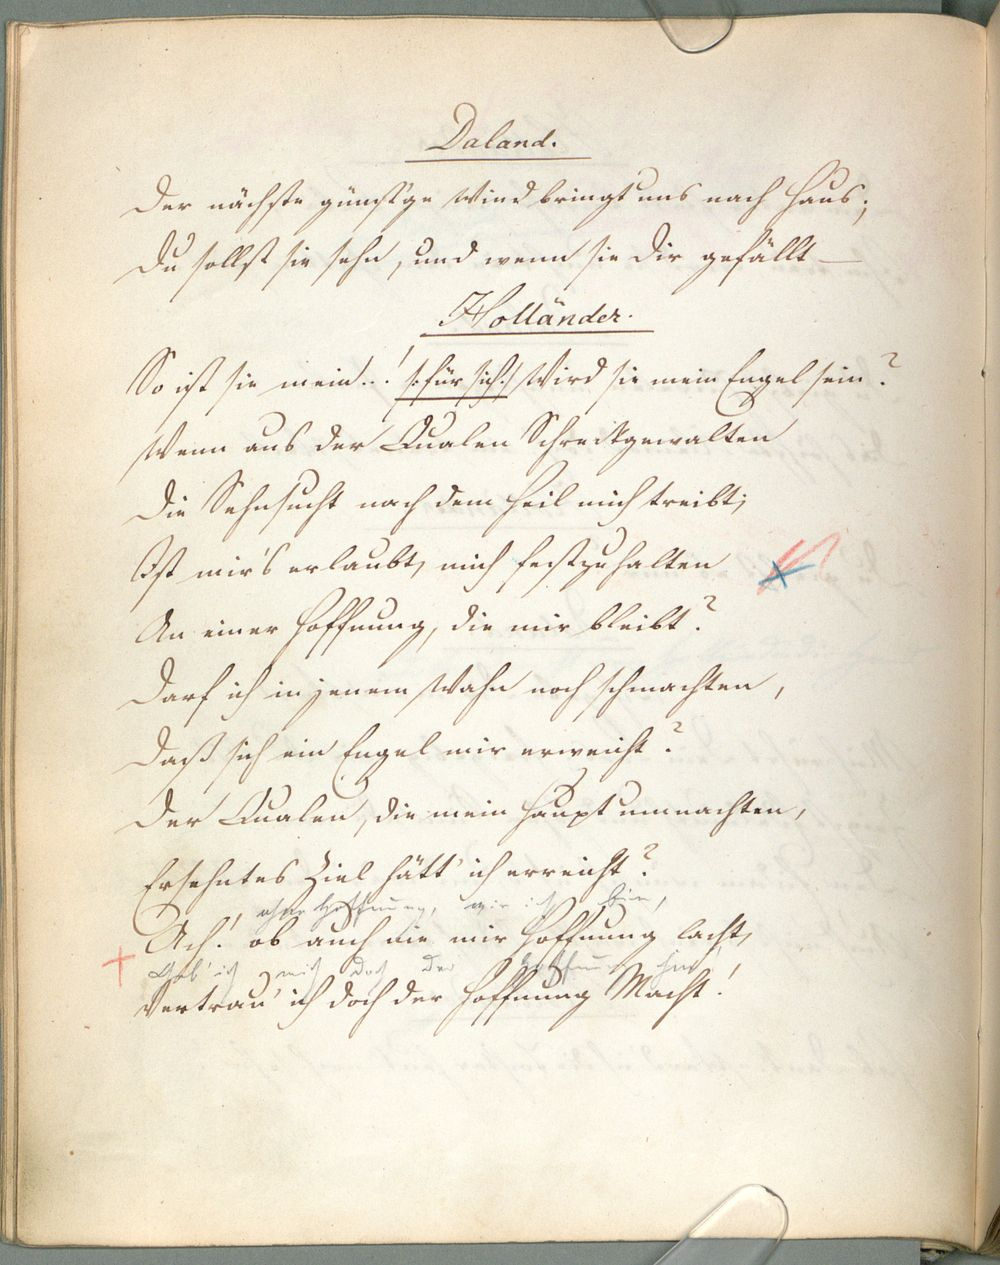 Daland.
Der nächste günst'ge Wind bringt uns nach Haus;
Du sollst sie sehn, und wenn sie dir gefällt —
Holländer.
So ist sie mein...! /:für sich:/ Wird sie mein Engel sein?
Wenn aus der Qualen Schreckgewalten
Die Sehnsucht nach dem Heil mich treibt,
Ist mir's erlaubt, mich festzuhalten
An einer Hoffnung, die mir bleibt?
Darf ich in jenem Wahn noch schmachten,
Daß sich ein Engel mir erweicht?
Der Qualen, die mein Haupt umnachten,
Ersehntes Ziel hätt' ich erreicht?
ohne Hoffnung, wie ich bin,
Ach! ob auch nie mir Hoffnung lacht,
Geb' ich mich doch der Hoffnung hin!
Vertrau' ich doch der Hoffnung Macht!